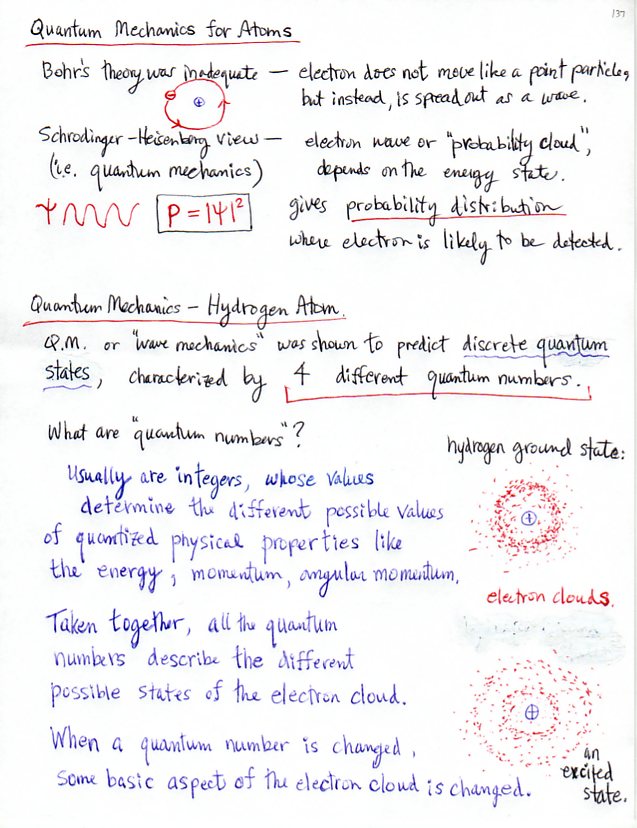 137
Quantum Mechanics for Atoms
Bohr's theory was inadequate — electron does not move like a point particle,
but instead, is spread out as a wave.
Schrodinger-Heisenberg view — electron wave or "probability cloud",
(i.e. quantum mechanics) depends on the energy state.
Ψ P = |Ψ|² gives probability distribution
where electron is likely to be detected.
Quantum Mechanics - Hydrogen Atom.
Q.M. or "wave mechanics" was shown to predict discrete quantum
states, characterized by 4 different quantum numbers.
What are "quantum numbers"?
hydrogen ground state:
Usually are integers, whose values
determine the different possible values
of quantized physical properties like
the energy, momentum, angular momentum.
+
electron clouds.
Taken together, all the quantum
numbers describe the different
possible states of the electron cloud.
+
When a quantum number is changed,
some basic aspect of the electron cloud is changed.
an
excited
state.